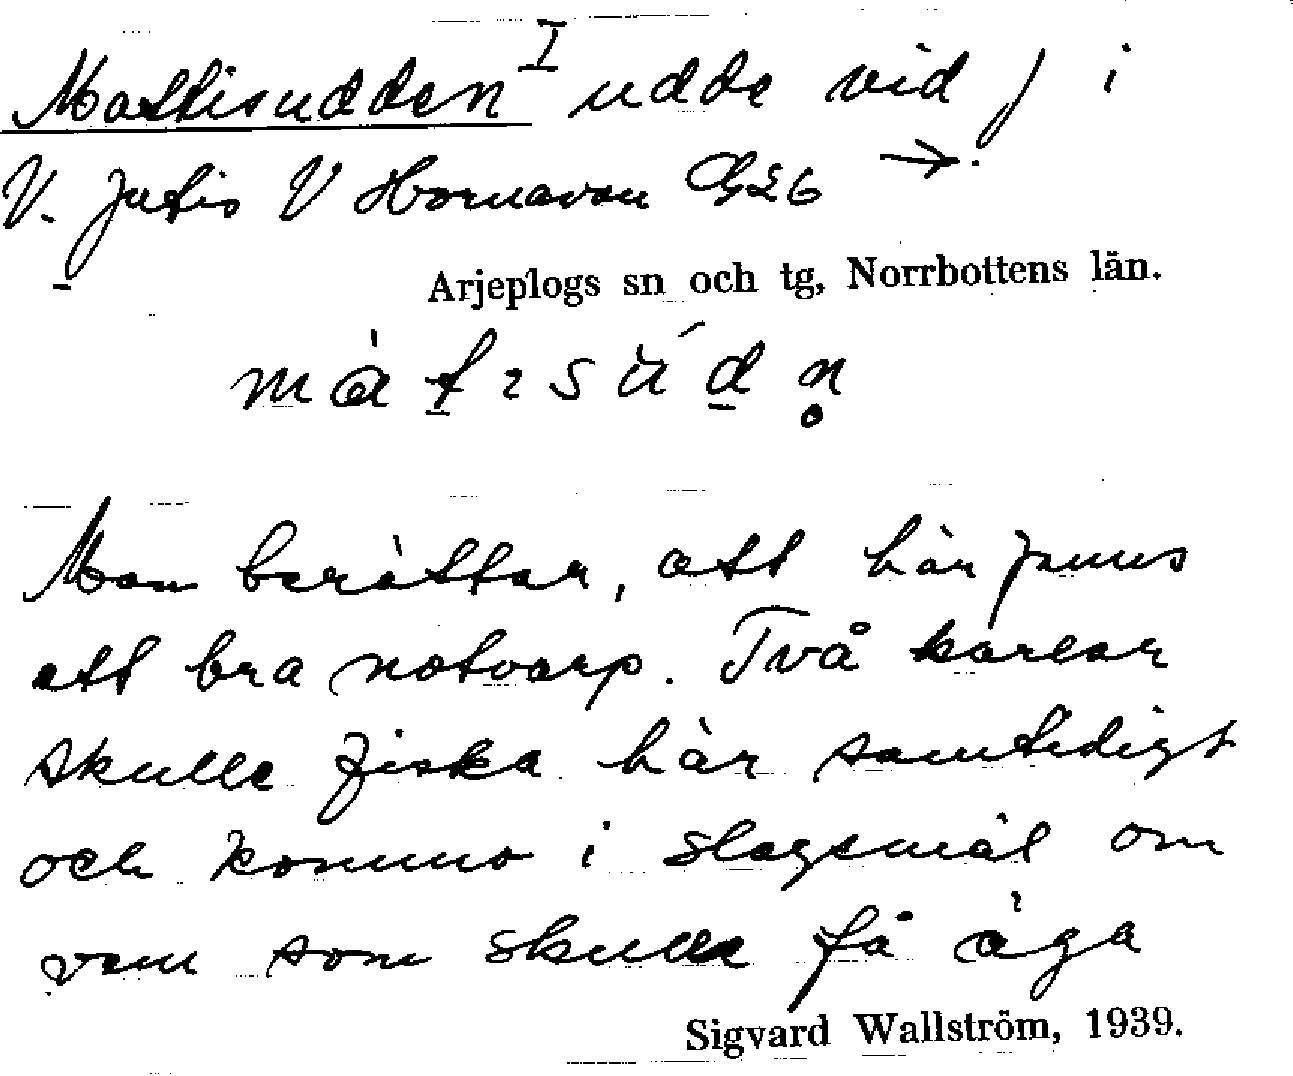 Mattisudden I udde vid j i
V. Jutis V Hornavan G26 →.
Arjeplogs sn och tg, Norrbottens län.
Man berättar, att här funns
ett bra notvarp. Två karlar
skulle fiska här samtidigt
och kommo i slagsmål om
vem som skulle få äga
Sigvard Wallström, 1939.